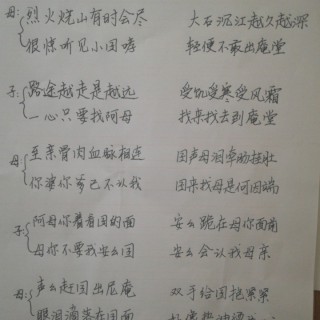 母: 烈火烧山有时会尽 大石沉江越久越深
很惊听见小国哮 轻便不敢出庵堂
子: 路途越走是越远 受饥受寒受风霜
一心只要找阿母 找来找去到庵堂
母 至亲骨肉血脉相连 国声母泪卓肠挂肚
你诨你 己不认我 国来找母是何因端
子: 阿母你看着国的面 安么跪在母你面前
母你不要我安么国 安么会认我母亲
母: 声么赶国出尼庵 双手给国抱紧紧
眼泪滴落在国面